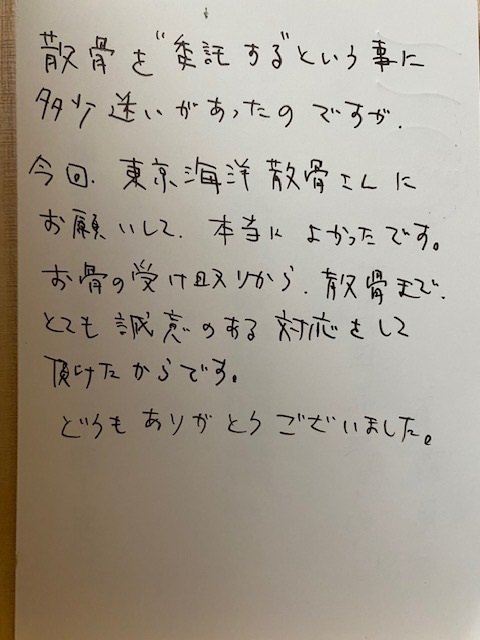 散骨を"委託する"という事に
多少迷いがあったのですが、
今回、東京海洋散骨さんに
お願いして、本当によかったです。
お骨の受け取りから、散骨まで、
とても誠意のある対応をして
頂けたからです。
どうもありがとうございました。